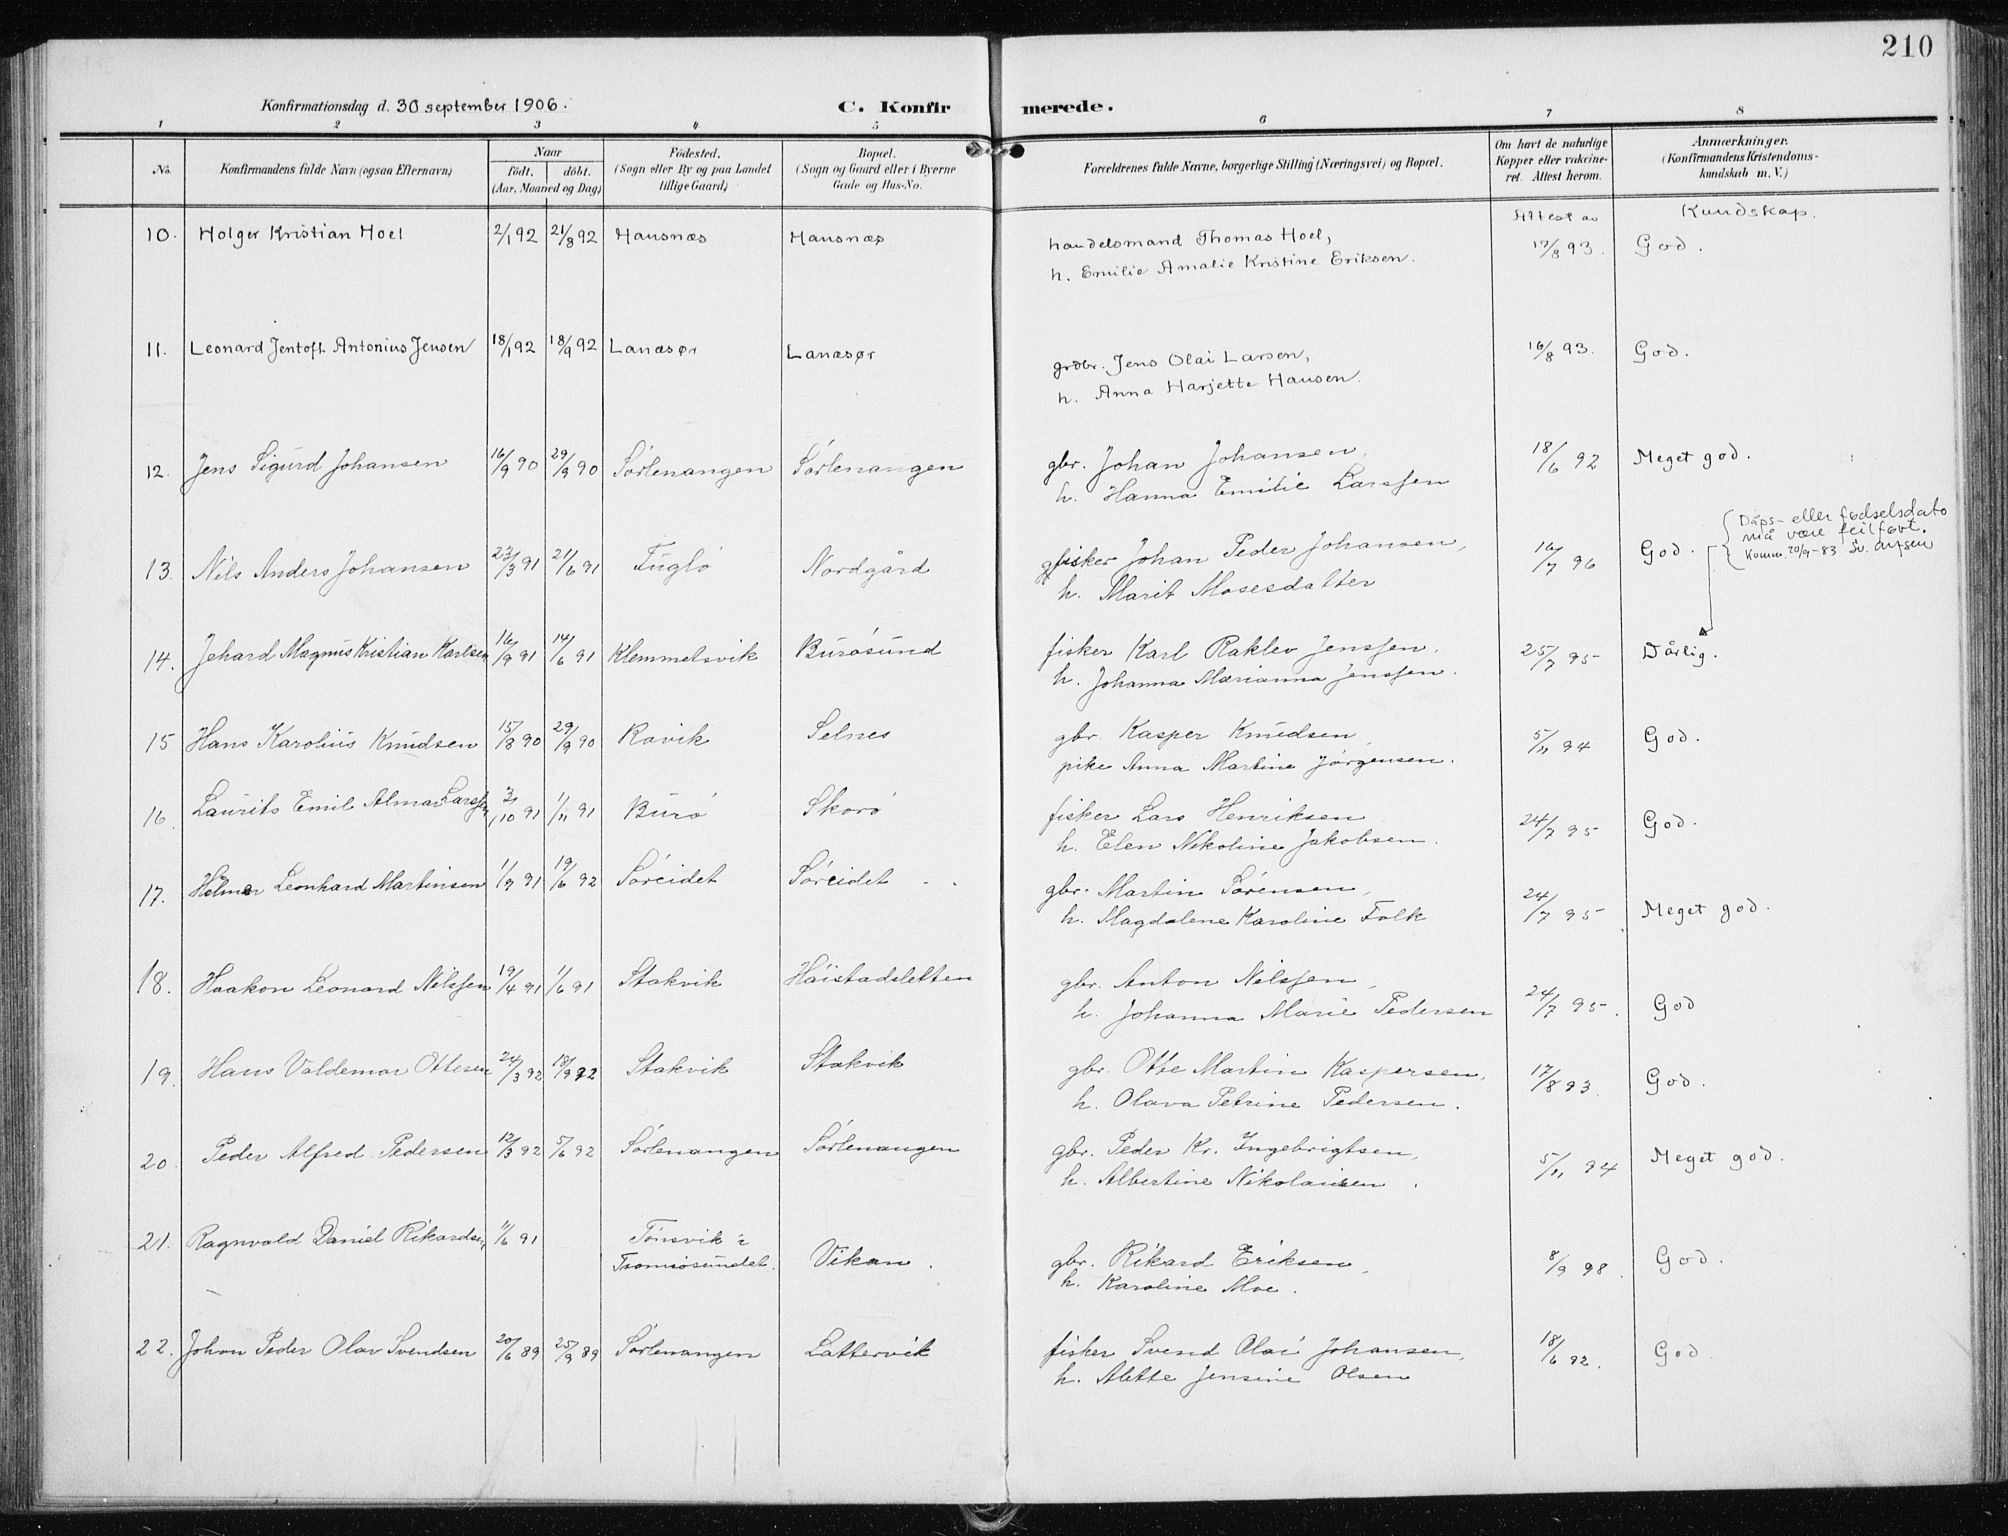 210
Konfirmationsdag d. 30 september 1906. C. Konfirmerede.
1 2 3 4 5 6 7 8
No. Konfirmandens fulde Navn (ogsaa Efternavn) Naar født. døbt. (Aar, Maaned og Dag) Fødested. (Sogn eller By og paa Landet tillige Gaard) Bopæl. (Sogn og Gaard eller i Byerne Gade og Hus-No. Forældrenes fulde Navne, borgerlige Stilling (Næringsvei) og Bopæl. Om havt de naturlige Kopper eller vakcineret. Attest herom. Anmerkninger. (Konfirmandens Kristendomskundskab m. V.)
Attest av Kundskap.
10. Holger Kristian Hoel 2/1 92 21/8 92 Hansnæs Hansnæs handelsmand Thomas Hoel, 17/8 93. God.
h. Emilie Amalie Kristine Eriksen.
11. Leonard Jentoft Antonius Jensen 18/1 92 18/9 92 Lanæsør Lanæsør grdbr. Jens Olai Larsen, 16/8 93. God.
h. Anna Harjette Hansen.
12. Jens Sigurd Johansen 16/9 90 29/9 90 Sörlenangen Sörlenangen gbr. Johan Johansen, 18/6 92 Meget god.
h. Hanna Emilie Larssen
Dåps- eller fødselsdato
må være feilført.
Komm. 20/9-83 Sv.
13. Nils Anders Johansen 23/3 91 21/6 91 Fuglö Nordgård fisker Johan Peder Johansen, 16/7 96 God.
h. Marit Mosesdatter
14. Jehard Magnus Kristian Karlsen 16/9 91 14/6 91 Klemmetsvik Burösund fisker Karl Raklev Jenssen, 25/7 95 Dårlig.
h. Johanna Marianna Jenssen.
15 Hans Karolius Knudsen 15/8 90 29/9 90 Ravik Selnes gbr. Kasper Knudsen, 5/11 94 God.
pike Anna Martine Jörgensen.
16. Laurits Emil Almar Larssen 3/10 91 1/11 91 Burö Skorö fisker Lars Henriksen 24/7 95 God.
h. Elen Nikoline Jakobsen.
17. Helmer Leonhard Martinsen 1/9 91 19/6 92 Söreidet Söreidet gbr. Martin Sörensen, 24/7 95 Meget god.
h. Magdalene Karoline Falk
18. Haakon Leonard Nilssen 19/4 91 1/6 91 Stakvik Haistadsletten gbr. Anton Nilssen, 24/7 95. God
h. Johanna Marie Pedersen
19. Hans Valdemar Ottesen 24/3 92 18/9 92 Stakvik Stakvik gbr. Otte Martin Kaspersen, 17/8 93. God.
h. Olava Petrine Pedersen.
20. Peder Alfred Pedersen 12/3 92 5/6 92 Sörlenangen Sörlenangen gbr. Peder Kr. Ingebrigtsen, 5/11 94 Meget god.
h. Albertine Nikolaisen.
21. Ragnvald Daniel Rikardsen 11/6 91 Tönsvik i Tromsösundet. Vikan. gbr. Rikard Eriksen, 8/9 98. God.
h. Karoline Moe.
22. Johan Peder Olav Svendsen 20/6 89 25/9 89 Sörlenangen Lattervik fisker Svend Olai Johansen, 18/6 92. God.
h. Alette Jensine Olsen